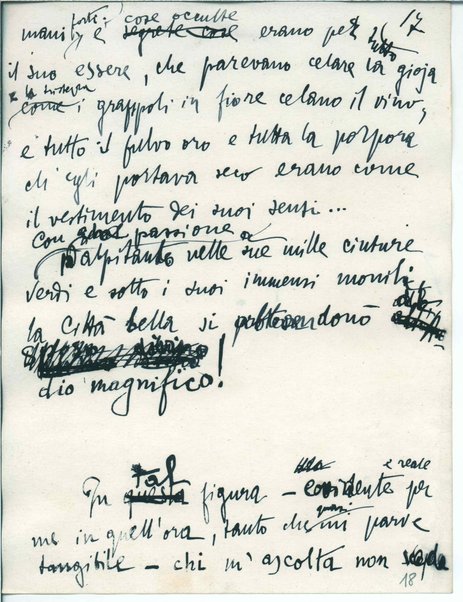 17
forti; cose occulte
manii e segrete cose erano per
tutto
il suo essere, che parevano celare la gioja
come i grappoli in fiore celano il vino;
e tutto il fulvo oro e tutta la porpora
ch'egli portava seco erano come
il vestimento dei suoi sensi...
Con passione
Palpitante nelle sue mille cinture
verdi e sotto i suoi immensi monili
la Città bella si abbandonò al
divin
dio magnifico!
Tal
In questa figura – evidente e reale per
me in quell'ora, tanto che quasi mi parve
tangibile – chi m'ascolta non veda
18